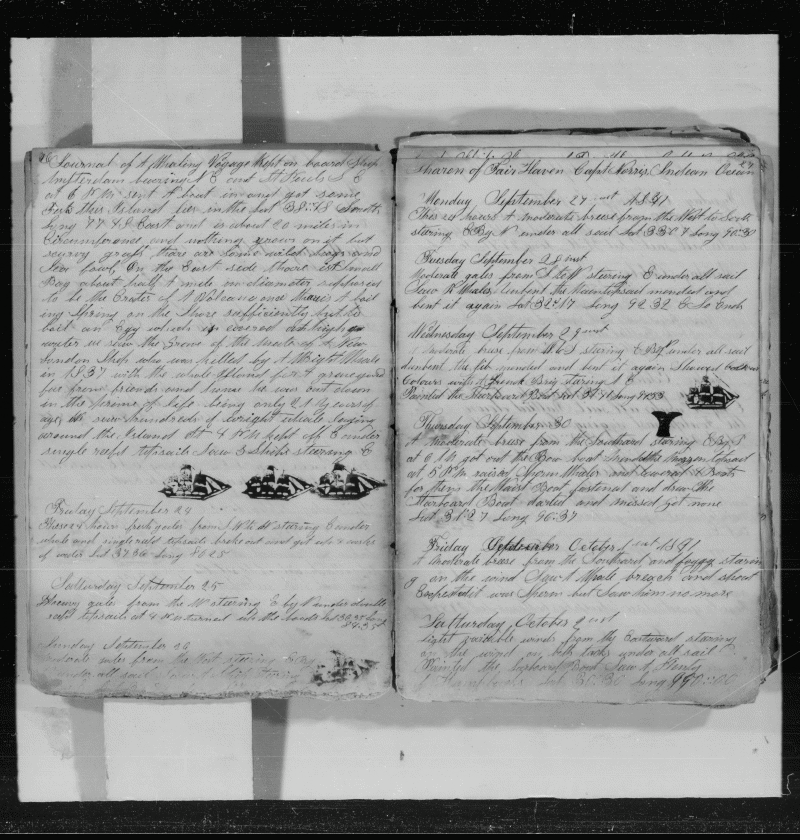 Journal of A Whaling Voyage Kept on board Ship
Amsterdam bearing N E and St Pauls S E
at 6 P M sent A boat in and got some
Fish this Island lies in the Lat 38:48 South
Long 77 48 East and is about 20 miles in
Circumference and nothing grows on it but
scurvy grass there are some wild hogs and
Sea fowl On the East side there is A Small
Bay about half A mile in diameter supposed
to be the Crater of A Volcano and there is A boil
ing Spring on the Shore sufficiently hot to
boil an Egg which is covered at high
water we saw the Grave of the Mate of A New
London Ship who was killed by A Wright Whale
in 1837 with the whole Island for A graveyard
far from friends and home he was cut down
in the prime of life being only 21 years of
age we saw hundreds of wright whale laying
around the Island at 4 P M kept of E under
single reeft topsails Saw 3 Ships steering E
Friday September 24
These 24 hours fresh gales from W N W staring E under
whole and single reeft topsails broke out and got
of water Lat 37.36 Long 80 25
Satturday September 25
Heavy gales from the W steering E by N under double
reeft topsails at 4
Sunday September 26
gales from the West steering E
under all sail
27
Sharon of Fair Haven Capt Norris Indian Ocean
Monday September 27 inst 1841
This 24 hours A moderate brease from the West to South
staring E By N under all sail Lat 33 07 Long 90.30
Tuesday September 28 inst
Moderate gales from S & W steering E under all sail
Saw R Whales unbent the Maintopsail mended and
bent it again Lat 32:17 Long 92 32 E So Ends
Wednesday September 29 inst
A moderate brease from W & S staring E By N under all sail
unbent the jib mended and bent it again Showed
Colours with A french Brig staring N E
Painted the Starboard Boat Lat 31
Thursday September 30
A moderate brease from the Southard staring E By S
at 6 A M got out the Bow boat bent the mizzen topsail
at 5 P M raised Sperm Whales and lowered 4 Boats
for them the Waist Boat fastened and drew the
Starboard Boat darted and missed got none
Lat 31:27 Long 96:37
Friday October 1 inst 1841
A moderate brease from the Southard and foggy staring
on the wind Saw A Whale breach and spout
Expected it was Sperm but Saw him no more
Satturday October 2 inst
Light variable winds from the Eastward staring
on the wind on both tacks under all sail
Painted the Larboard Boat Saw A Plenty
Lat 30:30 Long